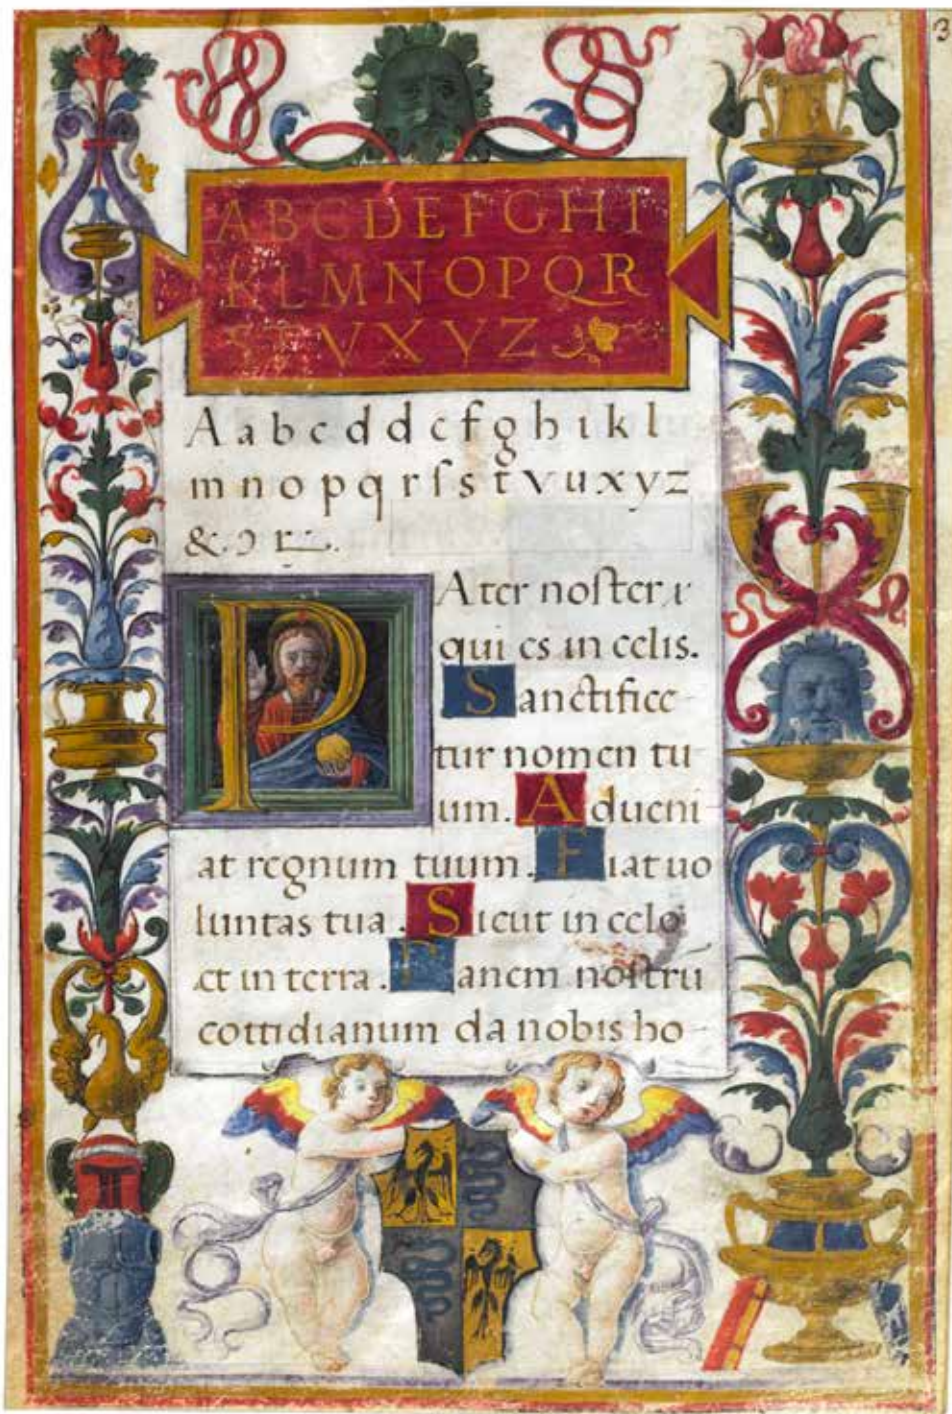 3
ABCDEFGHI
KLMNOPQR
VXYZ
A a b c d d e f g h i k l
m n o p q r ſ s t v u x y z
&. ɔ
PAter noſter
qui es in celis.
Sanctifice
tur nomen tu
um. Adueni
at regnum tuum. Fiat uo
luntas tua. Sicut in celo
et in terra. Panem noſtrū
cottidianum da nobis ho